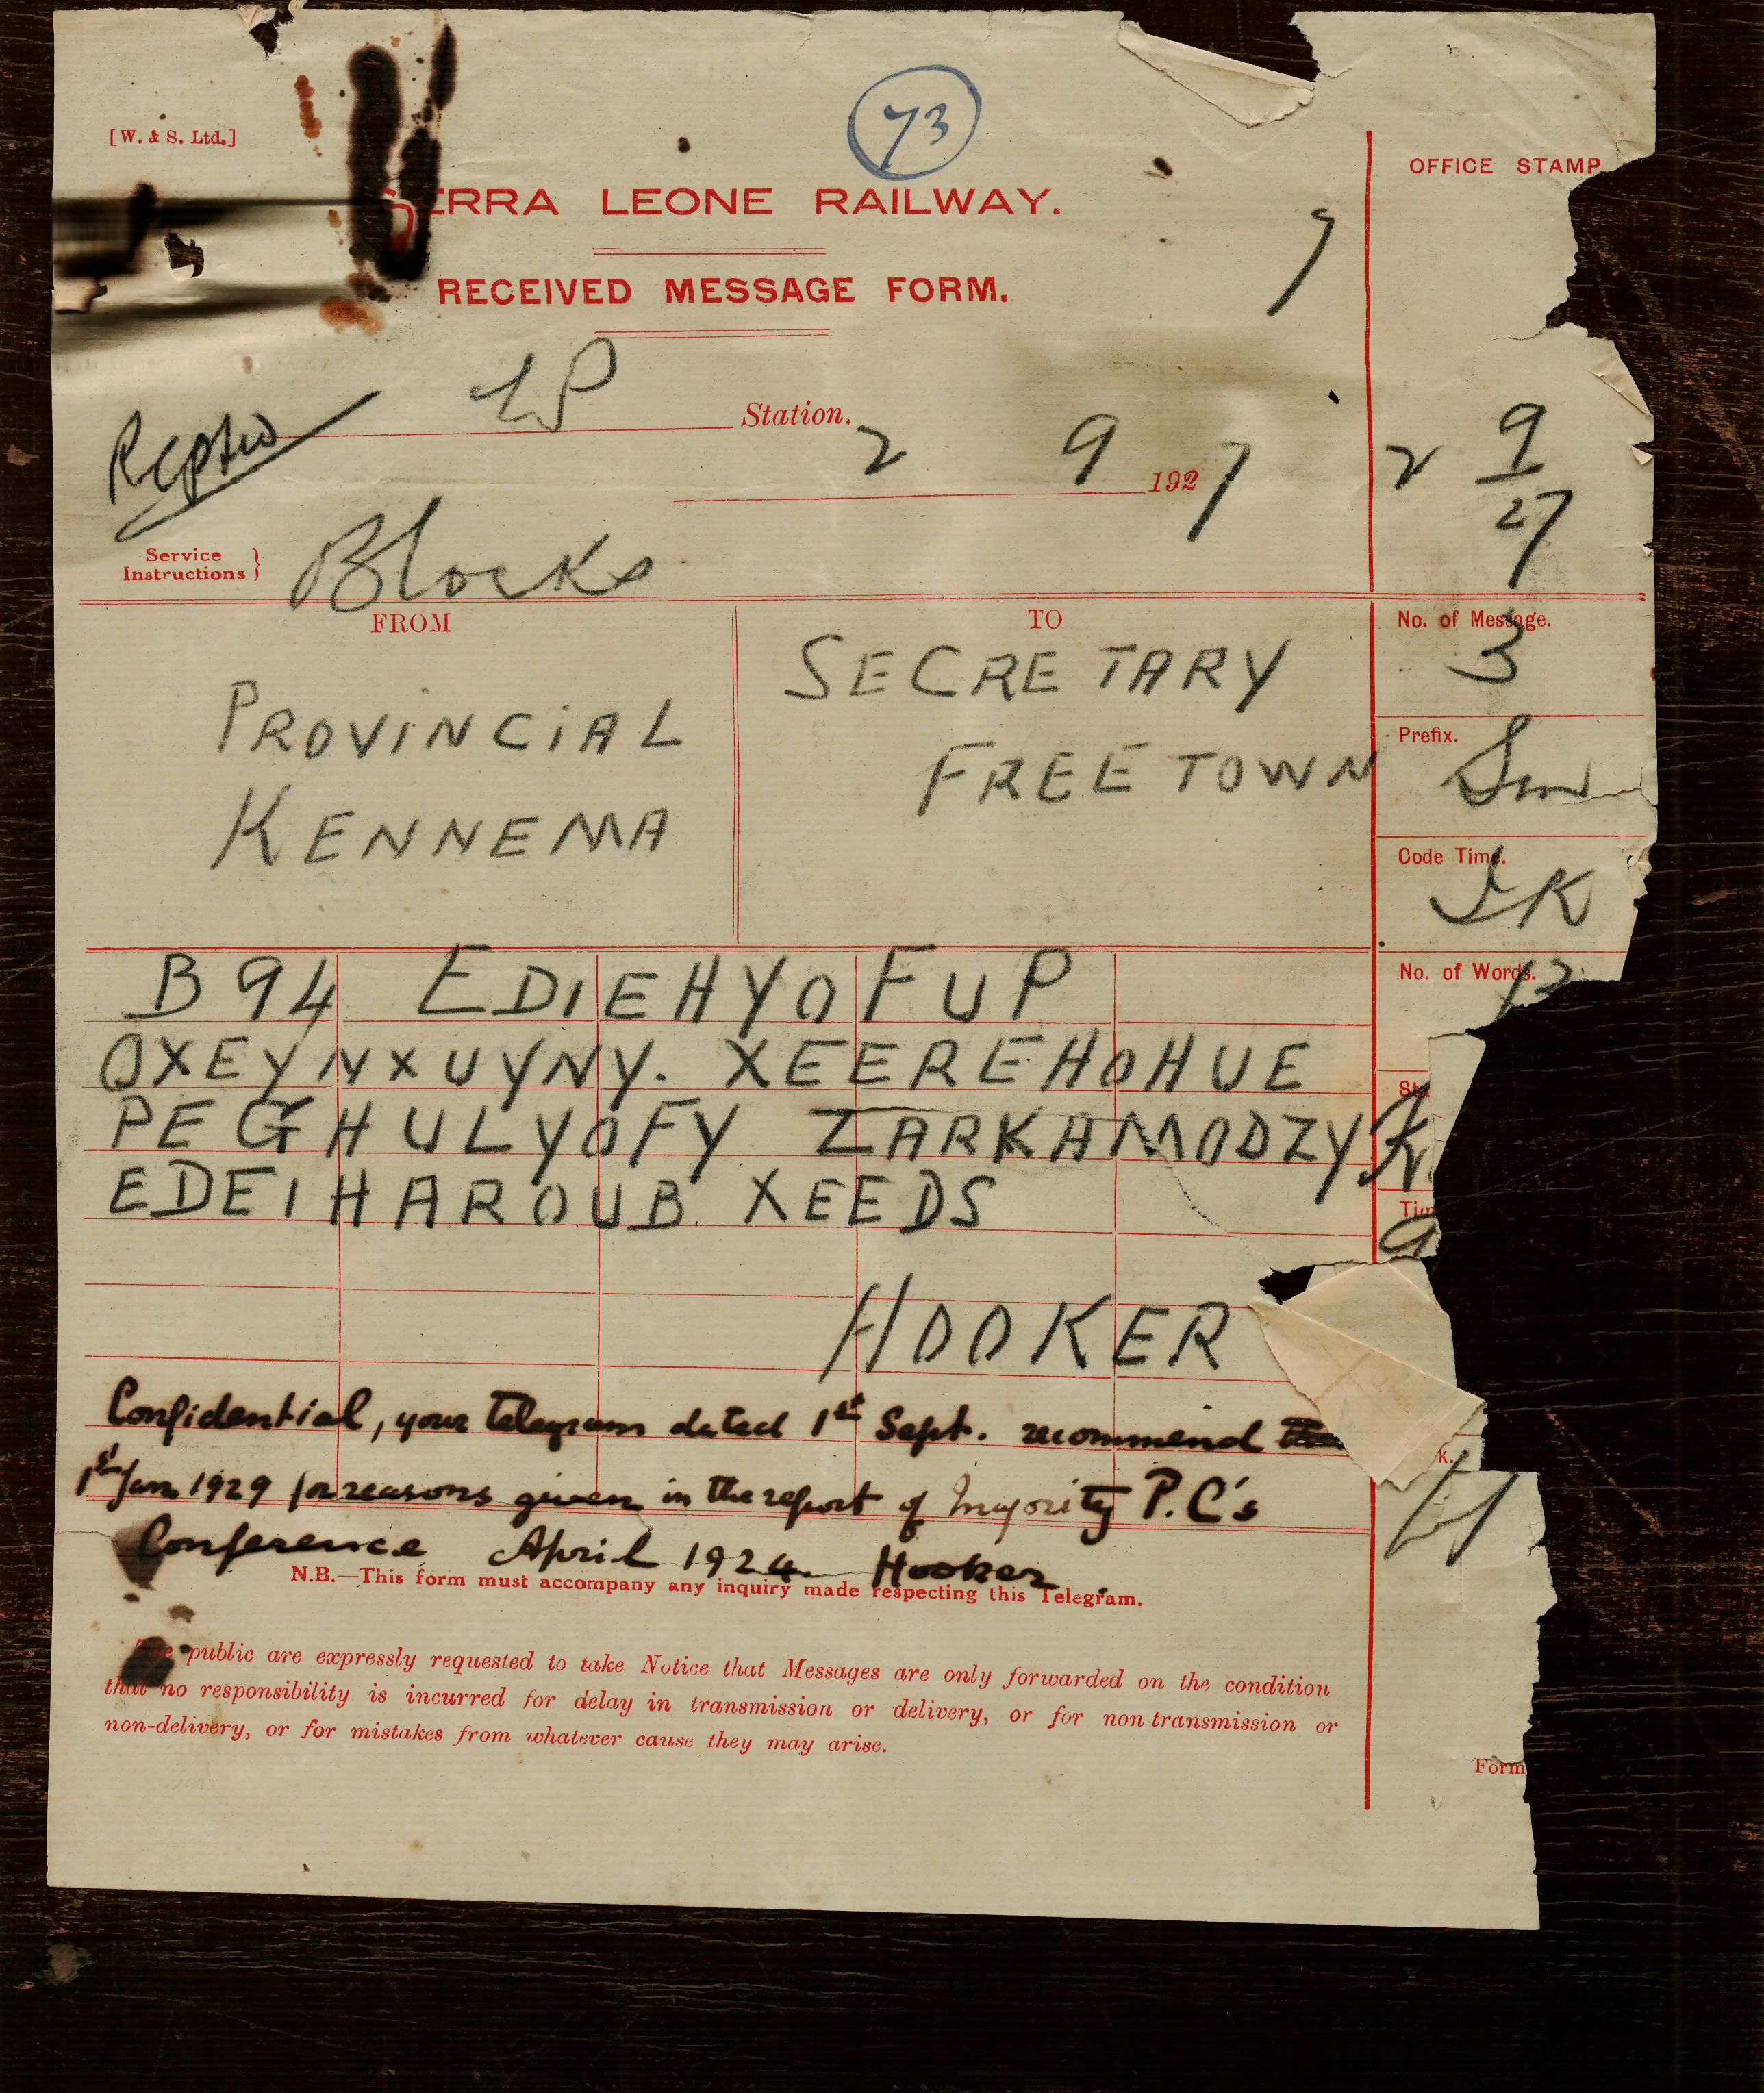 73
[W. & S. Ltd.]
OFFICE STAMP
SIERRA LEONE RAILWAY.
7
RECEIVED MESSAGE FORM.
Station.
2 9 1927
2 9
27
Service
Instructions }
Blocks
FROM
TO
No. of Message.
3
PROVINCIAL
KENNEMA
SECRETARY
FREETOWN
Prefix.
Sm
Code Time.
JK
No. of Words.
B94 EDIEHYOFUP
OXEYNXUYNY. XEEREHOHUE
PEGHULYOFY ZARKAMODZY
EDEIHAROUB XEEDS
HOOKER
Confidential, your telegram dated 1st Sept. recommend
1st Jan 1929 for reasons given in the report of Majority P.C's
Conference April 1924. Hooker
N.B.—This form must accompany any inquiry made respecting this Telegram.
The public are expressly requested to take Notice that Messages are only forwarded on the condition
that no responsibility is incurred for delay in transmission or delivery, or for non-transmission or
non-delivery, or for mistakes from whatever cause they may arise.
Form